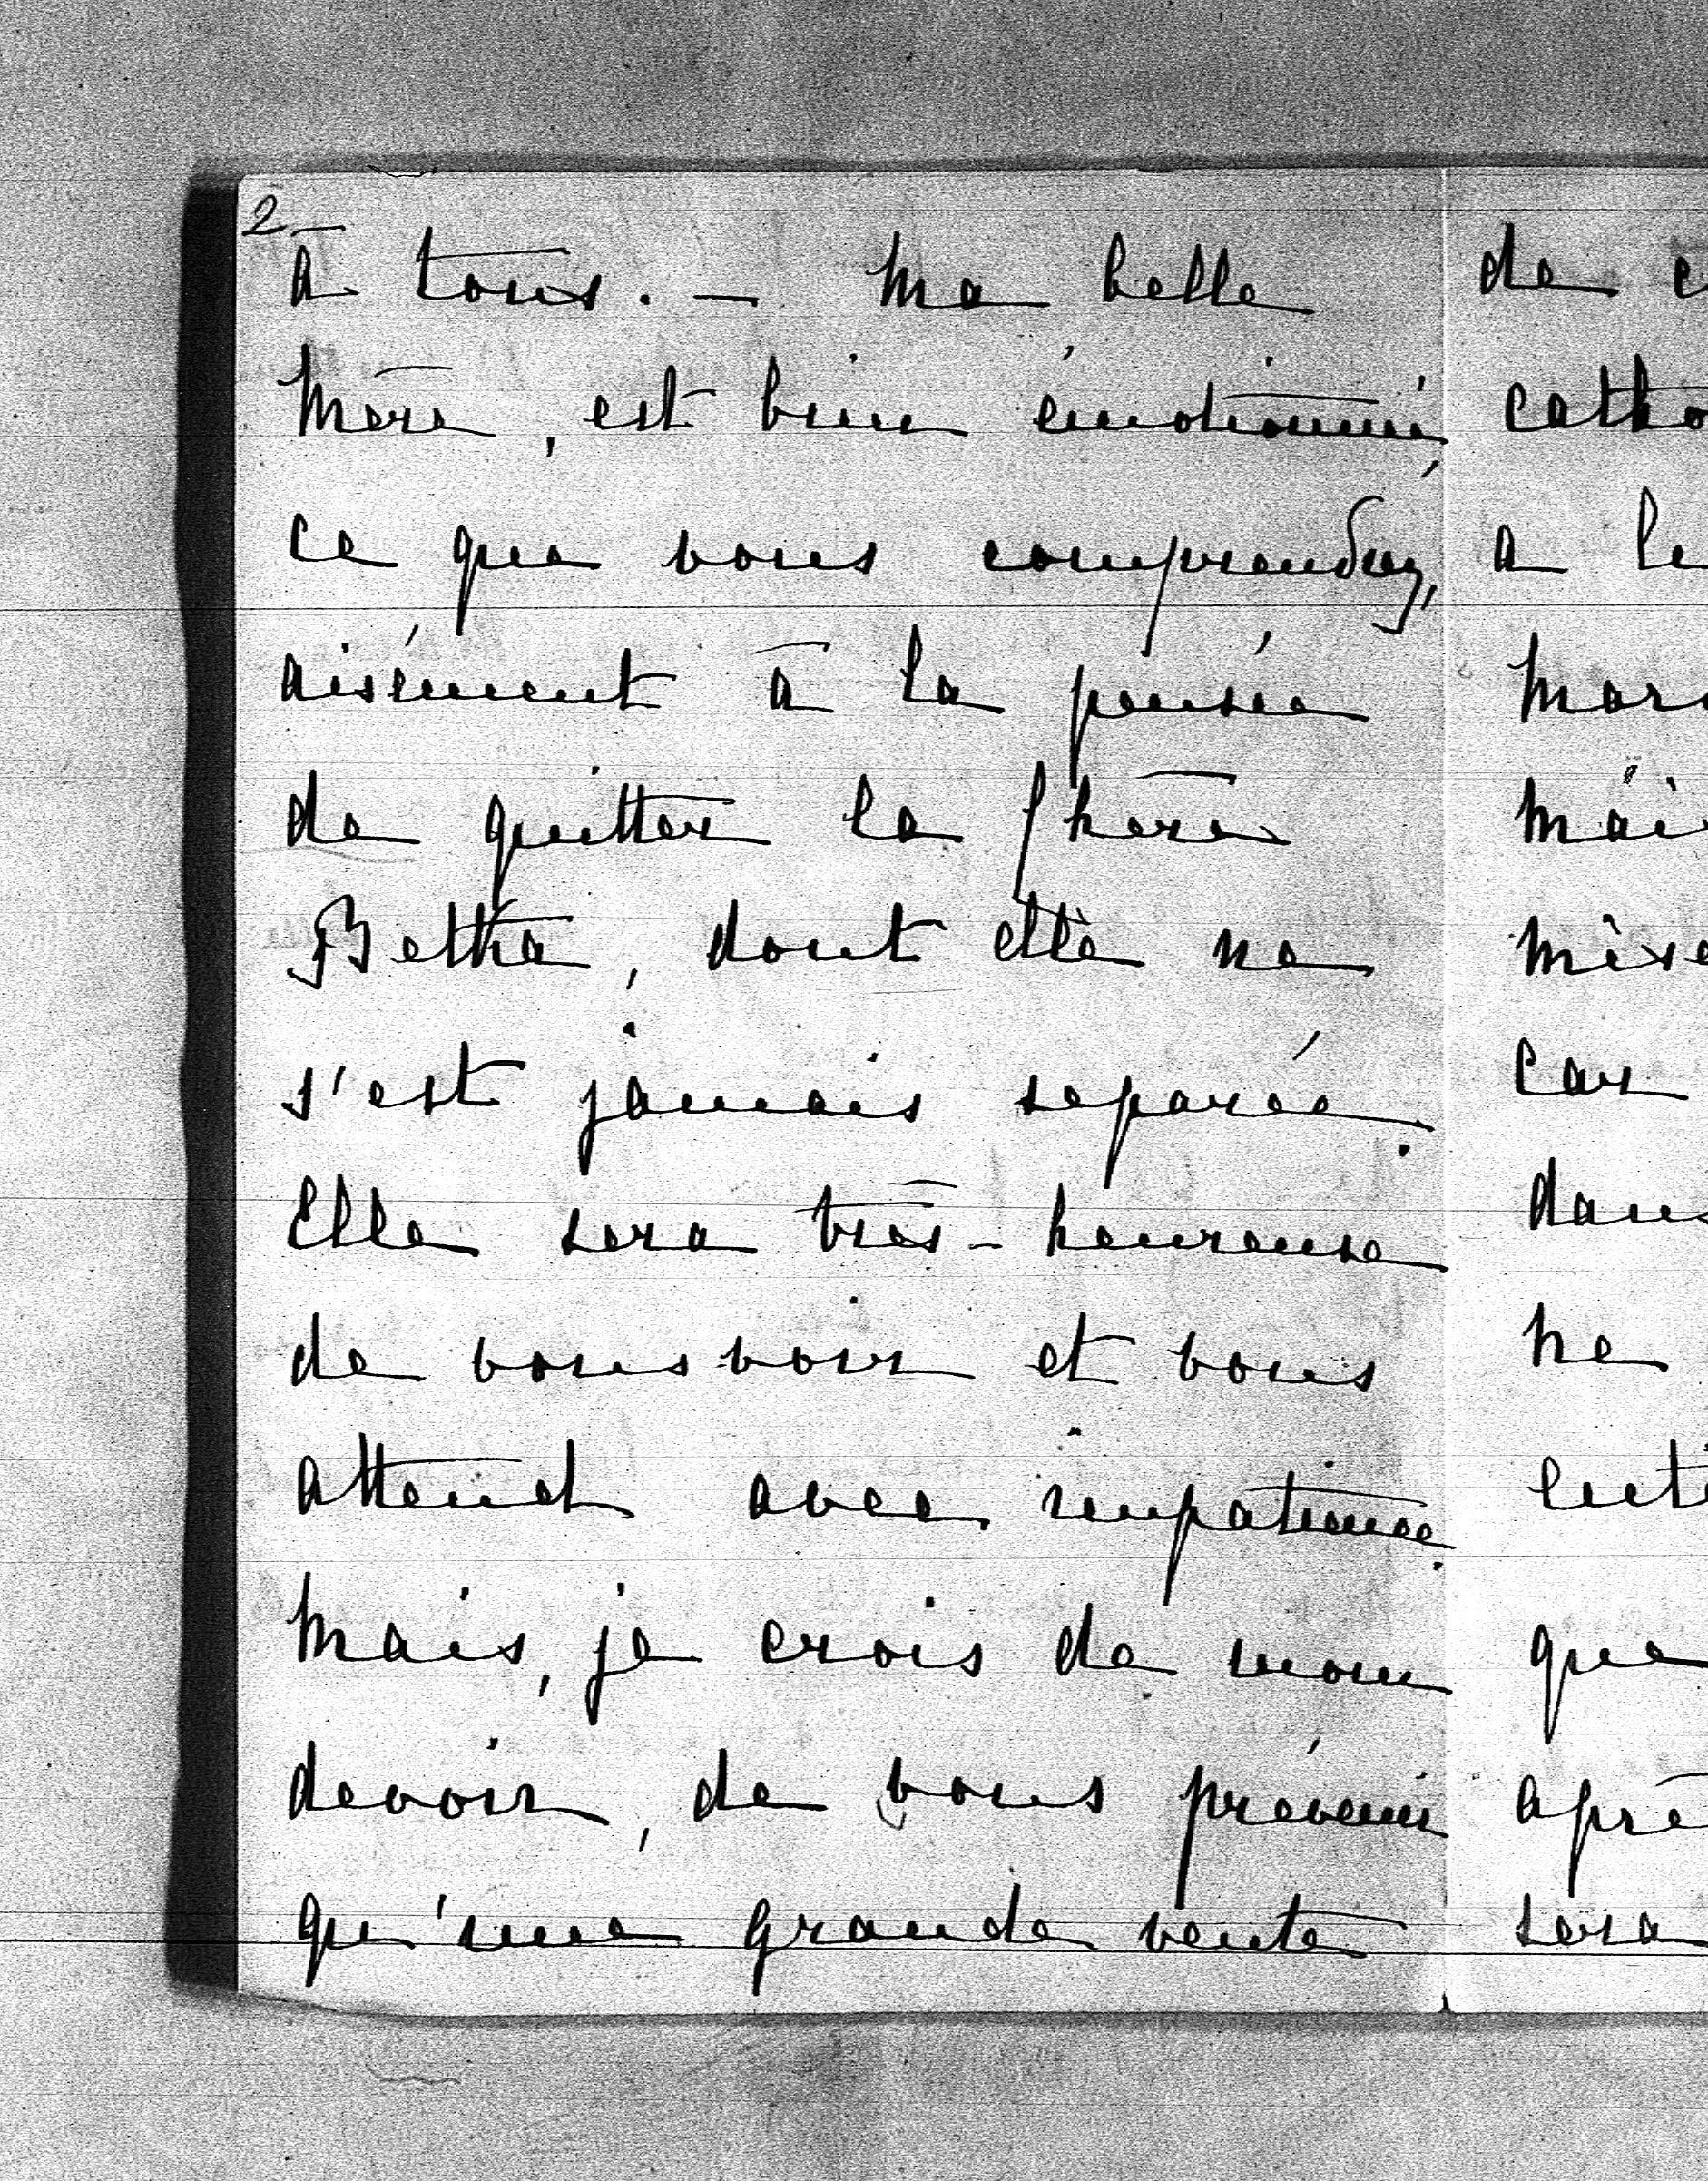 2
à tous. — Ma belle
Mère, est bien émotionnée,
ce que vous comprendrez,
aisément à la pensée
de quitter la chère
Betha, dont elle ne
s'est jamais separée.
Elle sera très-heureuse
de vous voir et vous
attend avec impatience.
Mais, je crois de mon
devoir, de vous prévenir
qu'une grande vente
de
a
car
ne
que
sera